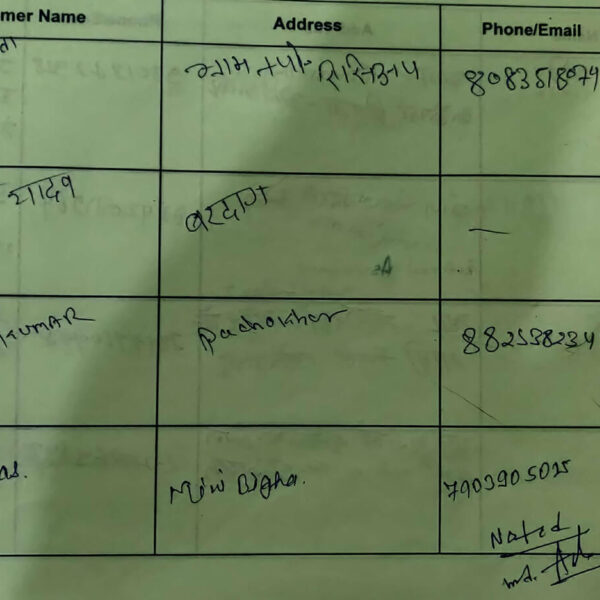 mer Name Address Phone/Email
ता ग्राम +पो- सिसिआप 8083518074
यादव बरदाग —
KUMAR Pachokhar 882538234
as. Mini Bigha. 7903905025
Noted
md.